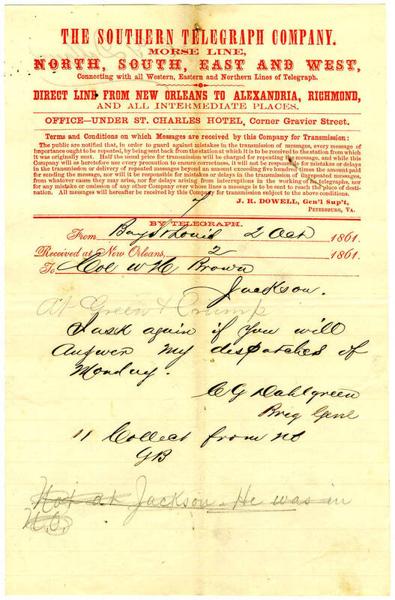 THE SOUTHERN TELEGRAPH COMPANY.
MORSE LINE,
NORTH, SOUTH, EAST AND WEST,
Connecting with all Western, Eastern and Northern Lines of Telegraph.
DIRECT LINE FROM NEW ORLEANS TO ALEXANDRIA, RICHMOND,
AND ALL INTERMEDIATE PLACES.
OFFICE—UNDER ST. CHARLES HOTEL, Corner Gravier Street.
Terms and Conditions on which Messages are received by this Company for Transmission:
The public are notified that, in order to guard against mistakes in the transmission of messages, every message of
importance ought to be repeated, by being sent back from the station at which it is to be received to the station from which
it was originally sent. Half the usual price for transmission will be charged for repeating the message, and while this
Company will as heretofore use every precaution to ensure correctness, it will not be responsible for mistakes or delays
in the transmission or delivery of repeated messages beyond an amount exceeding five hundred times the amount paid
for sending the message, nor will it be responsible for mistakes or delays in the transmission of unrepeated messages,
from whatever cause they may arise, nor for delays arising from interruptions in the working of its telegraphs, nor
for any mistake or omission of any other Company over whose lines a message is to be sent to reach the place of desti-
nation. All messages will hereafter be received by this Company for transmission subject to the above conditions.
J. R. DOWELL, Gen'l Sup't,
PETERSBURG, VA.
BY TELEGRAPH.
From Bay St Louis 2 Oct 1861.
Received at New Orleans, 2 1861.
To Col W H Brown
Jackson.
At Green & Crump
I ask again if you will
answer my despatches of
Monday.
CG Dahlgreen
Brig Genl
11 Collect from
GB
Not at Jackson - He was in
N.O.